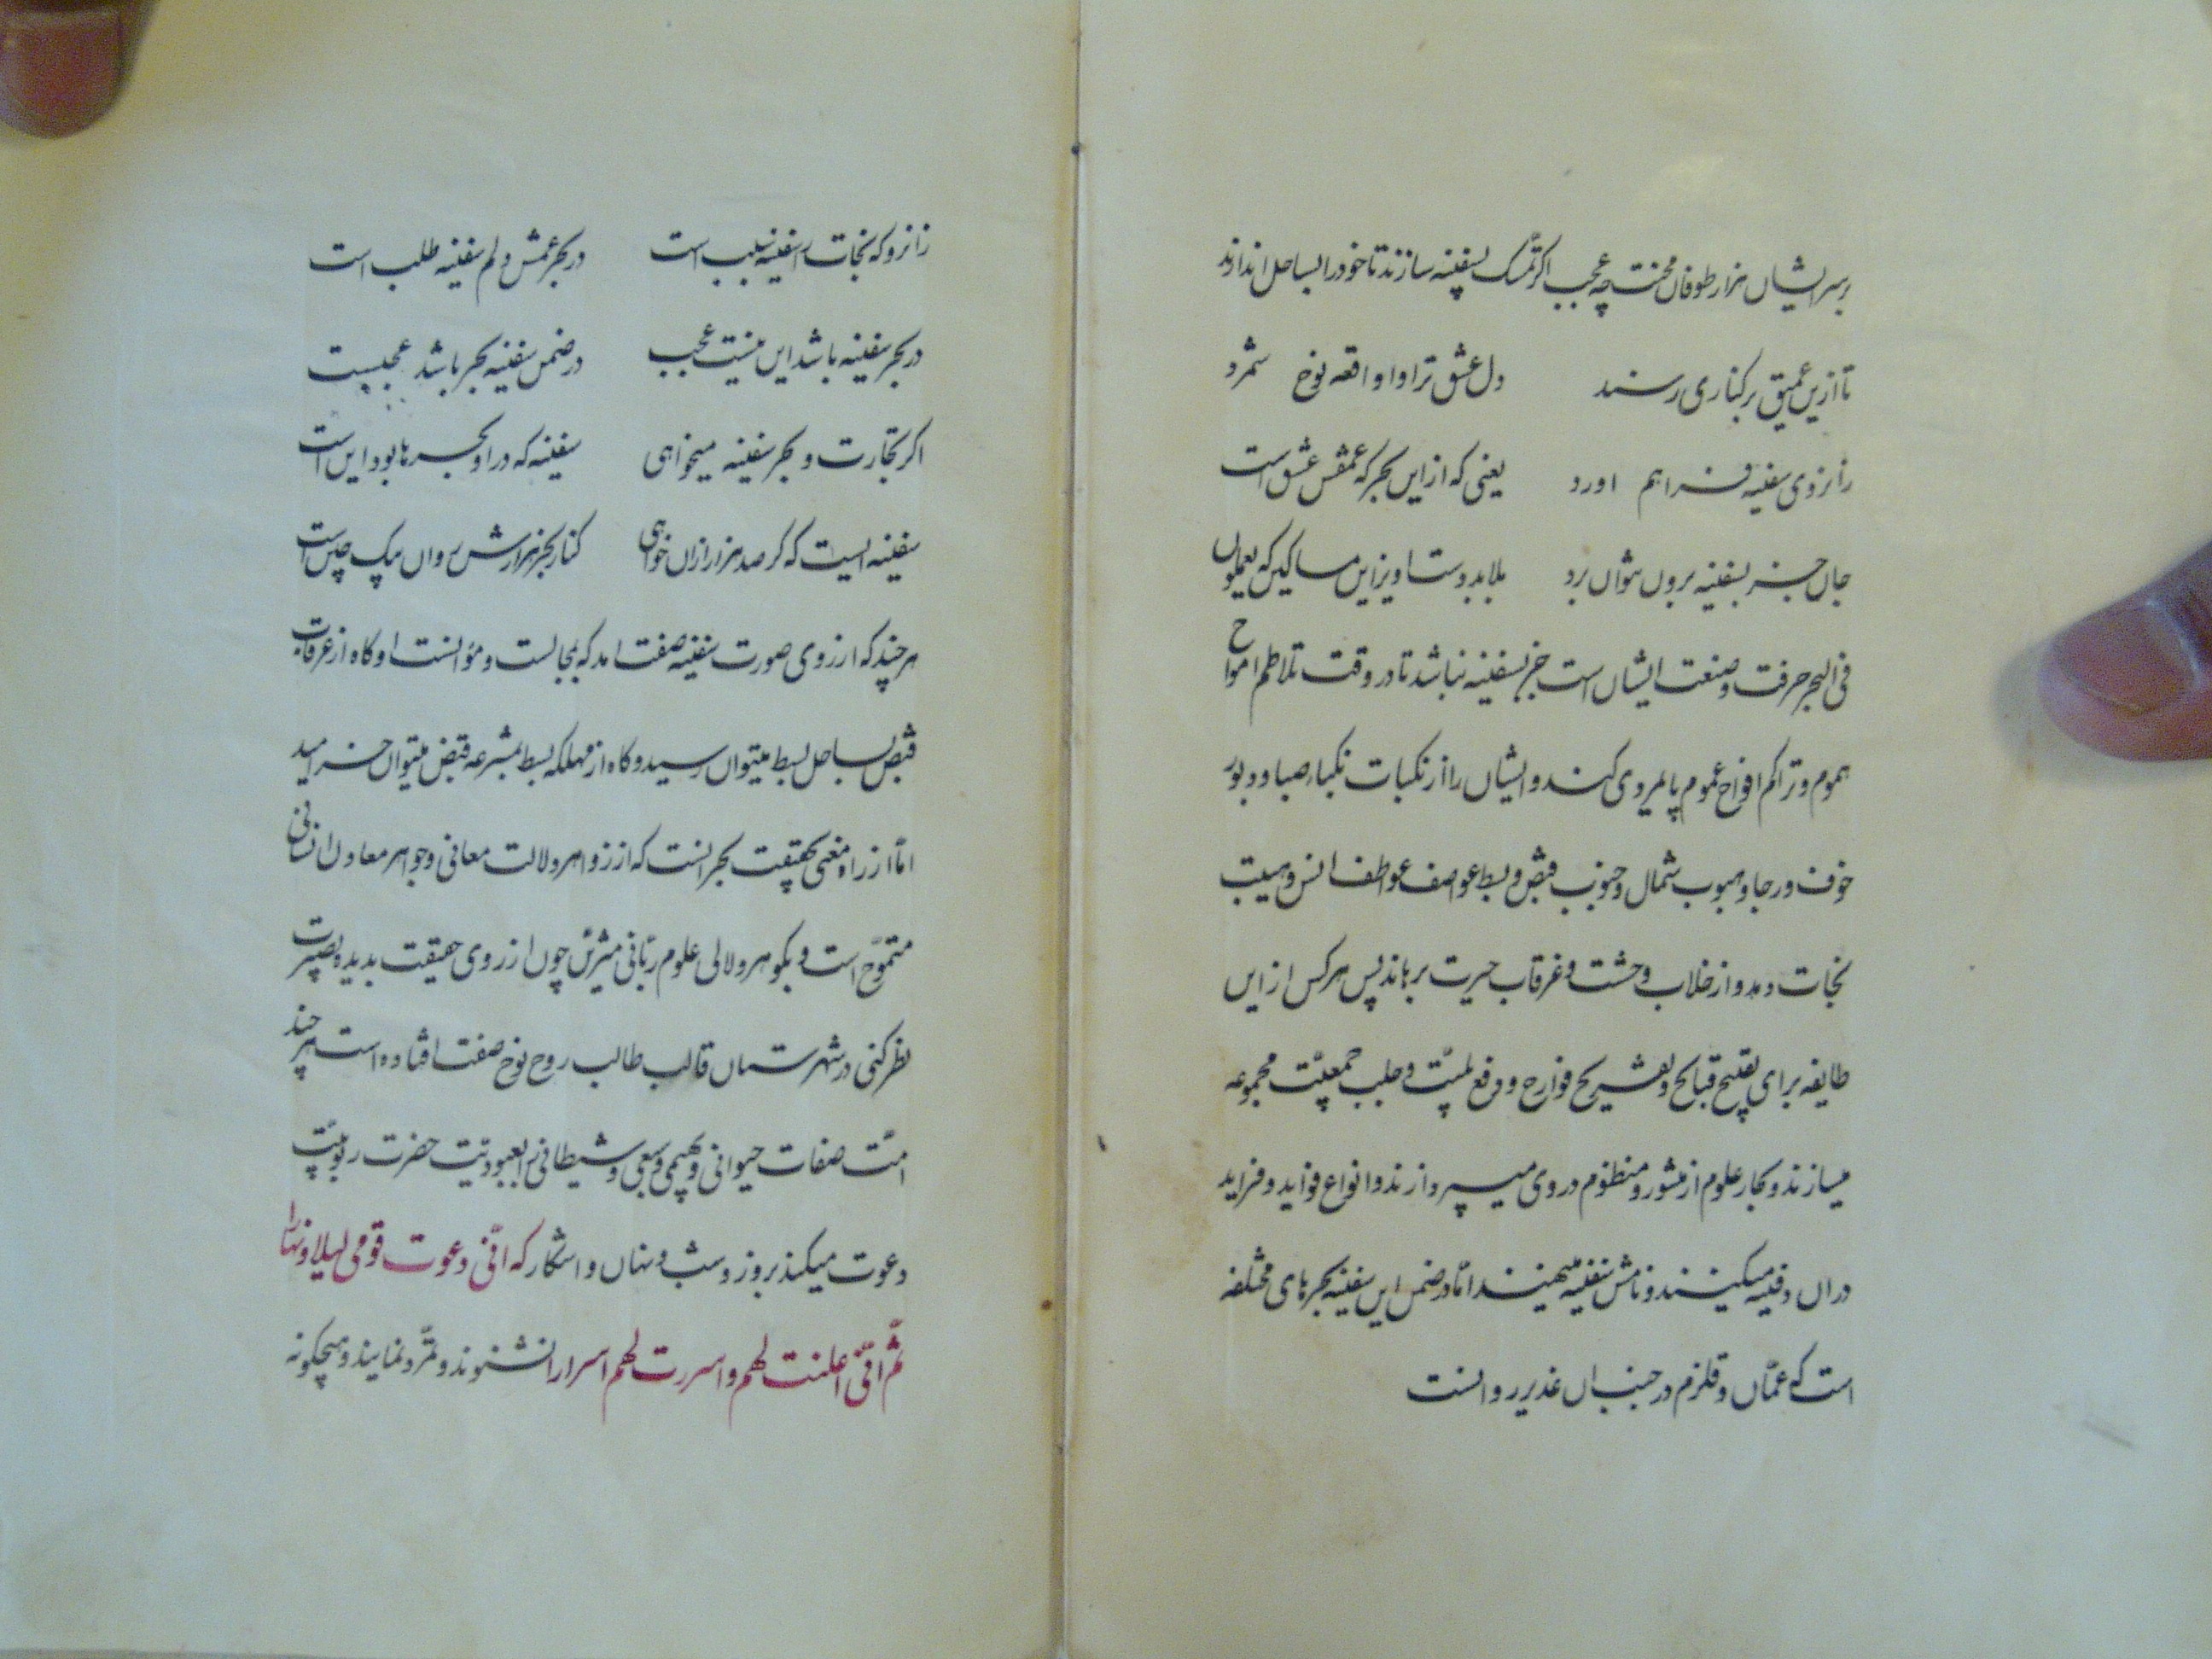 بر سر ایشان هزار طوفان محنت چه عجب اگر تمسک بسفینه سازند تا خود را بساحل اندازند
تا ازین عمیق بر کناری رسند دل عشق ترا واقعه نوح شمرد
زانروی سفینه فراهم اورد یعنی که ازاین بحر که عمقش عشق است
جان جز بسفینه برون نتوان برد بلابد دستاویز این مساکین که یعملون
فی البحر حرفت و صنعت ایشان است جز سفینه نباشد تا در وقت تلاطم امواج
هموم و تراکم افواج غموم پایمردی کند و ایشان را از نکبات نکباء صبا و دبور
خوف و رجا و هبوب شمال و جنوب قبض و بسط عواصف عواطف انس و هیبت
نجات دهد و از خلاب وحشت و غرقاب حیرت برهاند پس هر کس از این
طایفه برای تقبیح قبایح و تشریح فوارح و دفع بلیّت و جلب جمعیّت مجموعه
میسازند و بحار علوم از منثور و منظوم در وی میپردازند و انواع فواید و فراید
در ان دفینه میکنند و نامش سفینه مینهند امّا در ضمن این سفینه بحرهای مختلفه
است که عمّان و قلزم در جنب ان غدیر روانست
زانرو که نجات را سفینه سبب است در بحر غمش دلم سفینه طلب است
در بحر سفینه باشد این نیست عجب در ضمن سفینه بحر باشد عجبست
اگر تجارت و بحر سفینه میخواهی سفینه که در او بحرها بود این است
سفینه ایست که گر صد هزار ازان خواهی کنار بحر هزارش روان بیک چین است
هر چند که از روی صورت سفینه صفت امد که بمجالست و موانست او گاه از غرقاب
قبض بساحل بسط میتوان رسید و گاه از مهلکه بسط بمشرعه قبض میتوان خرامید
امّا از راه معنی بحقیقت بحریست که از زواهر دلالت معانی و جواهر معادن انسانی
متموّج است و بگوهر و لالی علوم ربّانی مشرّف چون از روی حقیقت بدیده بصیرت
نظر کنی در شهرستان قالب طالب روح نوح صفت افتاده است هر چند
امّت صفات حیوانی و بهیمی و سبعی و شیطانی را بعبودیت حضرت ربوبیّت
دعوت میکند بروز و شب و نهان و اشکار که انّی دعوت قومی لیلا و نهارا
ثمّ انّی اعلنت لهم و اسررت لهم اسرارا نشنوند و تمرّد نمایند و هیچگونه